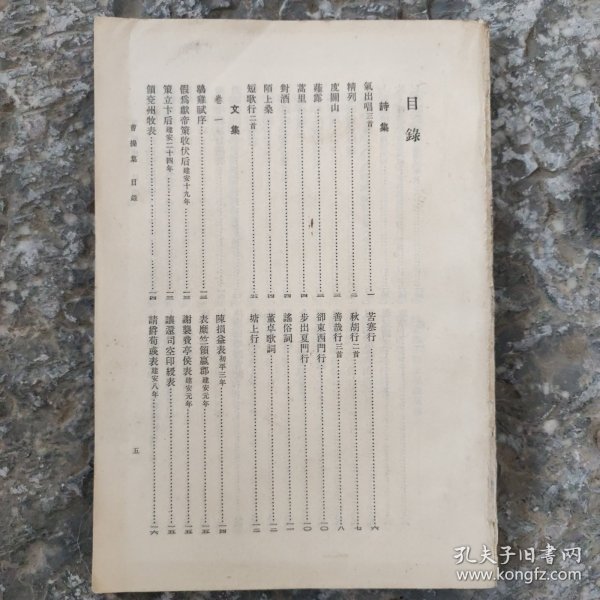 目錄
詩集
氣出唱三首……一
精列……二
度關山……三
薤露……三
蒿里……四
對酒……四
陌上桑……四
短歌行二首……五
苦寒行……六
秋胡行二首……七
善哉行三首……八
卻東西門行……一〇
步出夏門行……一〇
謠俗詞……一一
董卓歌詞……一二
塘上行……一二
文集
卷一
鶡雞賦序……一三
假爲獻帝策收伏后建安十九年……一三
策立卞后建安二十四年……一三
領兗州牧表……一四
陳損益表初平三年……一四
表糜竺領嬴郡建安元年……一五
謝襲費亭侯表建安元年……一五
讓還司空印綬表……一五
請爵荀彧表建安八年……一六
曹操集 目錄
五
孔夫子旧書网
www.kongfz.com